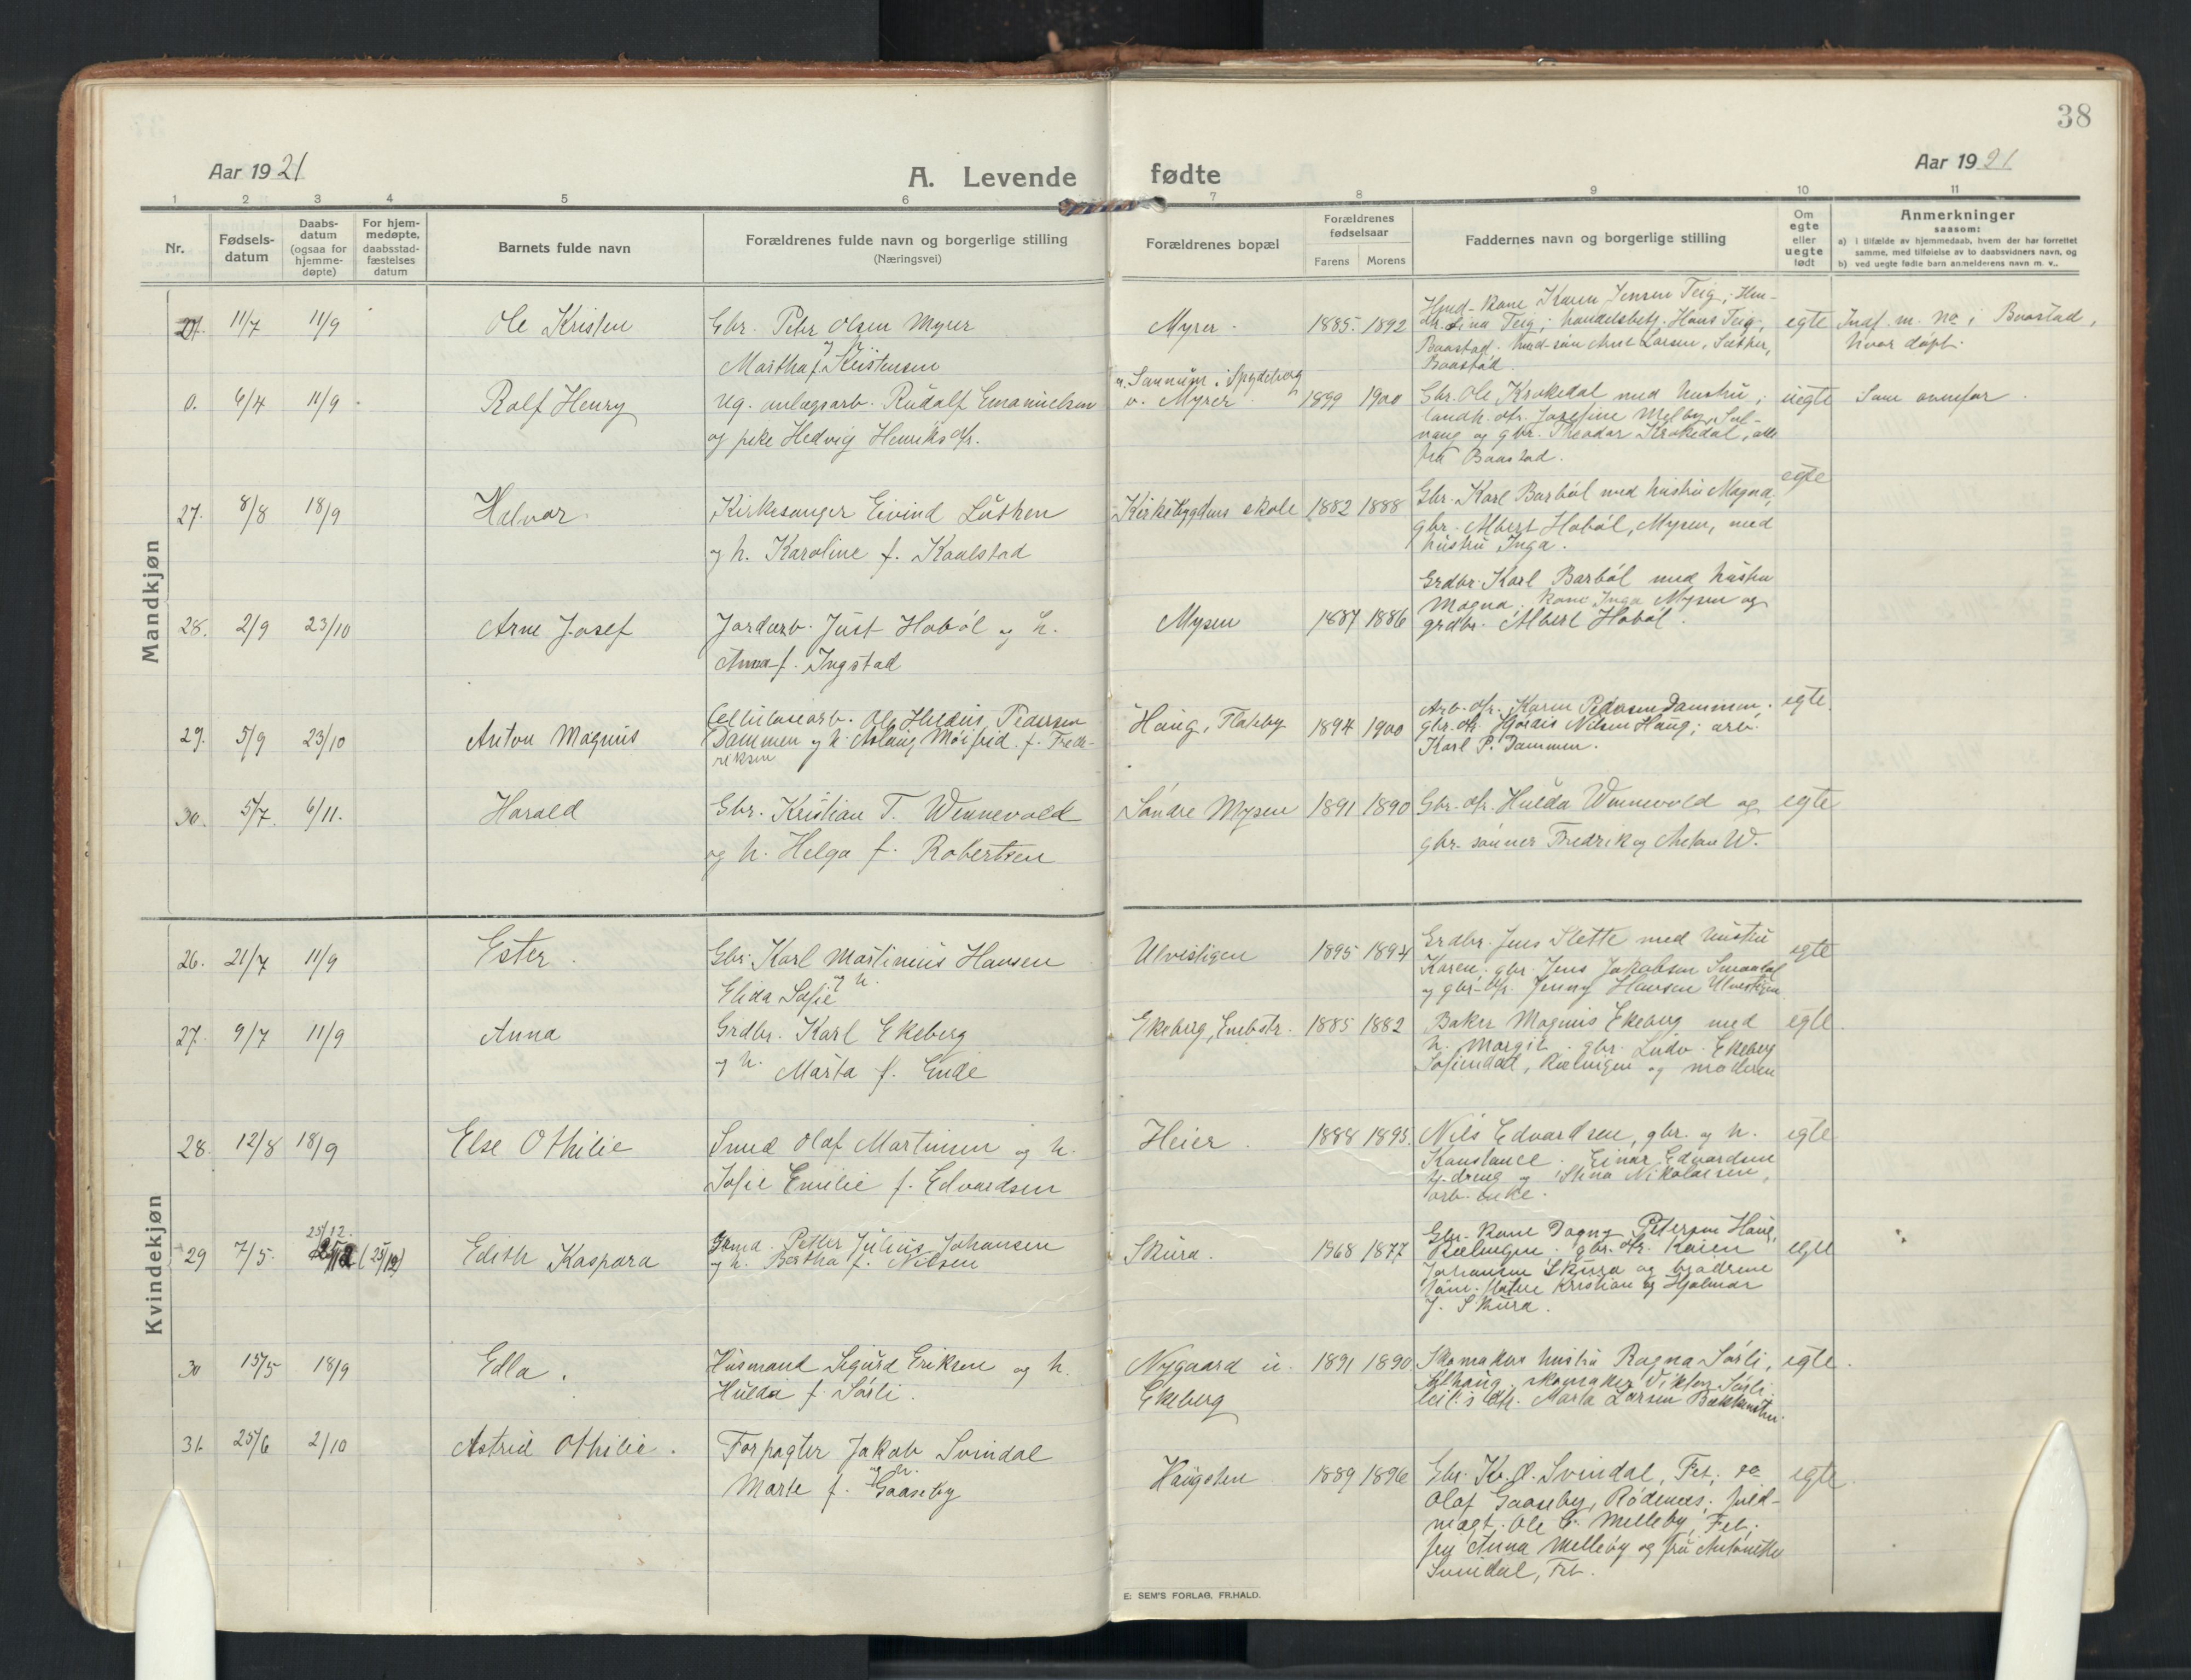 38
Aar 1921
A. Levende
fødte
Aar 1921
1 2 3 4 5 6 7 8 9 10 11
Nr.
Fødsels-
datum
Daabs-
datum
(ogsaa for
hjemme-
døpte)
For hjem-
medøpte,
daabsstad-
fæstelses
datum
Barnets fulde navn
Forældrenes fulde navn og borgerlige stilling
(Næringsvei)
Forældrenes bopæl
Forældrenes
fødselsaar
Farens Morens
Faddernes navn og borgerlige stilling
Om
egte
eller
uegte
født
Anmerkninger
saasom:
a) i tilfælde av hjemmedaab, hvem der har forrettet
samme, med tilføielse av to daabsvidners navn, og
b) ved uegte fødte barn anmelderens navn m. v..
Mandkjøn
11/7 11/9 Ole Kristen
Gbr. Petr Olsen Myrer
og
Martha f. Kristensen
Myrer. 1885. 1892
Hmd-kone Karen Jensen Teig,
Lina Teig; handelsbetj. Hans Teig,
Baastad. Larsen, Sæther,
Baastad.
egte
Indf. m. no i Baastad,
hvor døpt.
0. 6/4 11/9 Rolf Henry
Ug. anlægsarb. Rudolf Emanuelsen
og pike Hedvig Henriksdtr.
i Spydeberg
v. Myrer 1899 1900
Gbr. Ole Krokedal med hustru;
landh. dtr. Josefine Melby,
og gbr. Theodor Krokedal, alle
fra Baastad.
uegte
Som ovenfor.
27. 8/8 18/9 Halvor
Kirkesanger Eivind Luthen
og h. Karoline f. Kaalstad
Kirkebygdens skole 1882 1888
Gbr. Karl Barbøl med hustru Magna,
gbr. Albert Habøl, Mysen, med
hustru Inga.
egte
28. 2/9 23/10 Arne Josef
Jordarb. Just Habøl og h.
Anna f. Ingstad
Mysen 1887 1886
Grdbr. Karl Barbøl med hustru
Magna, kone Inga Mysen og
grdbr. Albert Habøl.
29. 5/9 23/10 Anton Magnus
Cellulosearb. Ole Hildeus Pedersen
Dammen og h. Aslaug Møifrid f. Frede-
riksen
Haug, Flateby 1894 1900
Arb. dtr. Karen Pedersen Dammen.
gbr. dtr. Hjørdis Nilsen Haug; arb.
Karl P. Dammen.
egte.
30. 5/7 6/11. Harald
Gbr. Kristian T. Wennevold
og h. Helga f. Robertsen
Søndre Mysen 1891 1890
Gbr. dtr. Hulda Wennevold og
gbr. sønner Fredrik og Anton W.
egte
Kvindekjøn
26. 21/7 11/9 Ester.
Gbr. Karl Martinius Hansen
og h.
Elida Sofie
Ulvestigen 1895 1894
Grdbr. Jens Slette med hustru
Karen; gbr. Jens Jakobsen
og gbr. dtr. Jenny Hansen Ulvestigen
egte
27. 9/7 11/9 Anna
Grdbr. Karl Ekeberg
og h. Marta f. Gude
Ekeberg, Enebstr. 1885 1882
Baker Magnus Ekeberg med
h. Margit. gbr. Ludv. Ekeberg
Sofiendal, Rælingen og moderen
egte.
28. 12/8 18/9 Else Othilie
Smed Olaf Martinsen og h.
Sofie Emilie f. Edvardsen
Heier. 1888 1895.
Nils Edvardsen, gbr. og h.
Konstance. Einar Edvardsen
tj.dreng og Stina Nikolaisen,
arb. enke.
egte.
25/12.
29 7/5. (25/12) Edith Kaspara
Petter Julius Johansen
og h. Bertha f. Nilsen
Skura. 1868 1877
Gbr. kone Dagny Petersen Haug,
Rælingen. gbr. dtr. Karen
Johansen Skura og brødrene
Kristian og Hjalmar
J. Skura.
egte
30 15/5 18/9 Edla.
Husmand Sigurd Eriksen og h.
Hulda f. Sørli.
Nygaard u.
Ekeberg
1891 1890
Skomaker hustru Ragna Sørli,
skomaker Viktor Sørli.
Marta Larsen
egte.
31. 25/6 2/10 Astrid Othilie.
Forpagter Jakob Svindal
og h.
Marte f. Gaaseby
Haugsten 1889 1896
Gbr. Kr. O. Svindal, Fet; do
Olaf Gaaseby, Rødenes;
Ole C. Melleby, Fet;
fru Anna Melleby og fru Antonette
Svindal, Fet.
egte.
E: SEM'S FORLAG, FR.HALD.